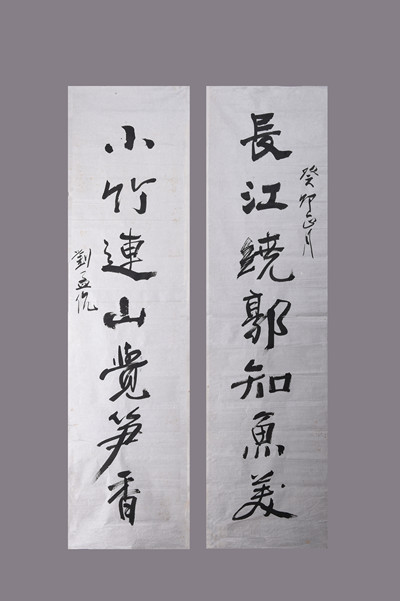 長江繞郭知魚美
癸卯正月
小竹連山覺笋香
劉孟伉